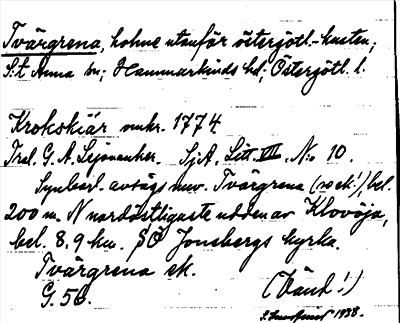 Tvärgrena, holme utanför östergötl.-kusten,
S:t Anna sn; Hammarkinds hd; Östergötl. l.
Krokskiär omkr. 1774.
Tral. G. A. Lejonanker. SjA. Litt. VIII. N:o 10.
Synbarl. avsägs nuv. Tvärgrena (no ek!), bel.
200 m. N nordöstligaste udden av Klovöja,
bel. 8,9 km. SÖ Jonsbergs kyrka.
Tvärgrena ek.
G. 56. (Vänd!)
1938.